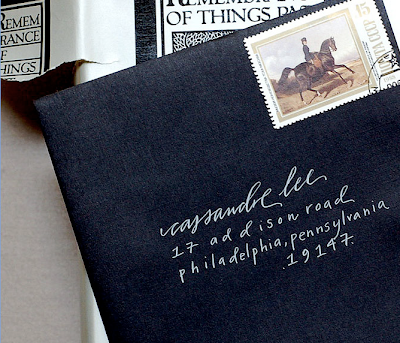 REMEM
RANCE
OF
THINGS
REMEM
OF THINGS PA
cassandra lee
17 addison road
philadelphia, pennsylvania
.19147.